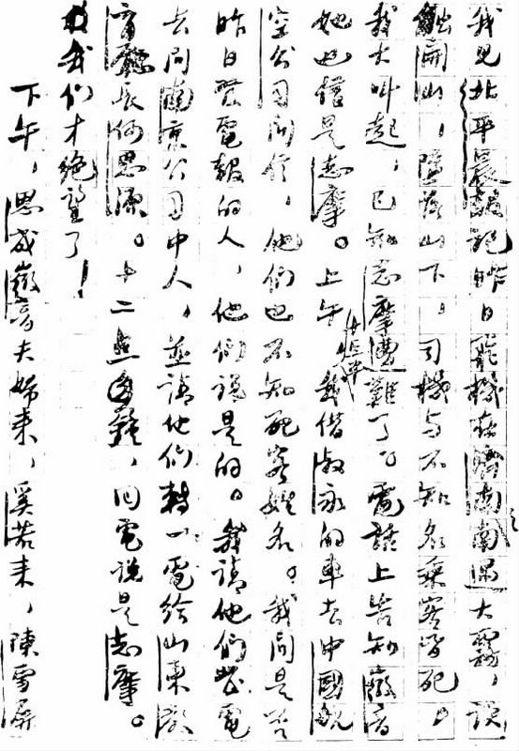 我見北平晨報記昨日飛機在濟南之南遇大霧，誤
觸開山，墮落山下。司機与不知名乘客皆死。
我大叫起，已知志摩遭難了。電話上告知徽音，
她也信是志摩。上午十時半我借叔永的車去中國航
空公司问信，他們也不知死客姓名。我问是否
昨日發電報的人，他们說是的。我請他們發電
去问南京公司中人，並請他们轉一電给山東教
育廳長何思源。十二點多鐘，回電說是志摩。
我们才絕望了！
下午，思成徽音夫婦来，奚若来，陳雪屏